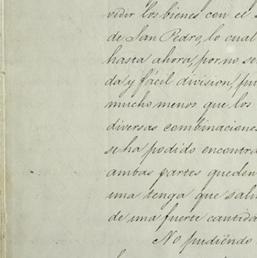 vidir los bienes con el
de San Pedro, lo cual
hasta ahora, por no se
da y fácil division, pu
mucho menor que los
diversas combinacione
se ha podido encontra
ambas partes queden
una tenga que sal
de una fuerte cantida
No pudiendo